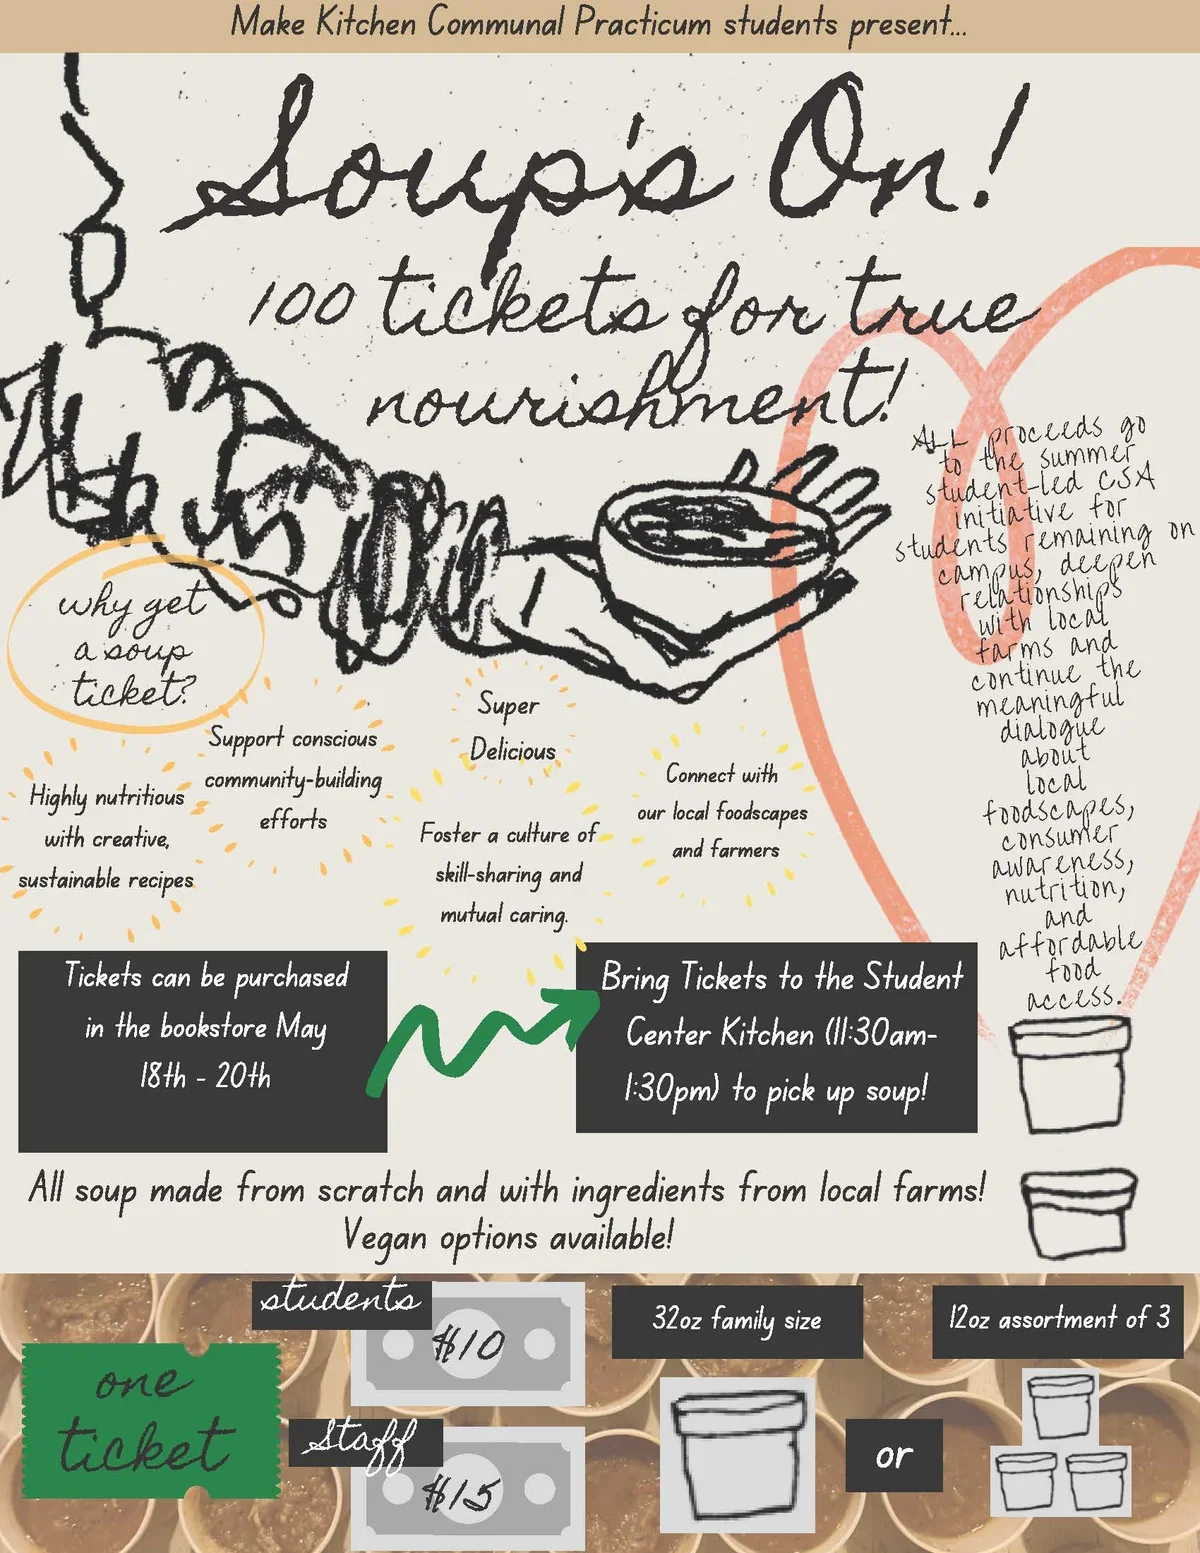 Make Kitchen Communal Practicum students present...
Soup's On!
100 tickets for true
nourishment!
ALL proceeds go
to the summer
student-led CSA
initiative for
students remaining on
campus, deepen
relationships
with local
farms and
continue the
meaningful
dialogue
about
local
foodscapes,
consumer
awareness,
nutrition,
and
affordable
food
access.
why get
a soup
ticket?
Highly nutritious
with creative,
sustainable recipes
Support conscious
community-building
efforts
Super
Delicious
Foster a culture of
skill-sharing and
mutual caring.
Connect with
our local foodscapes
and farmers
Tickets can be purchased
in the bookstore May
18th - 20th
Bring Tickets to the Student
Center Kitchen (11:30am-
1:30pm) to pick up soup!
All soup made from scratch and with ingredients from local farms!
Vegan options available!
one
ticket
students
$10
Staff
$15
32oz family size
or
12oz assortment of 3